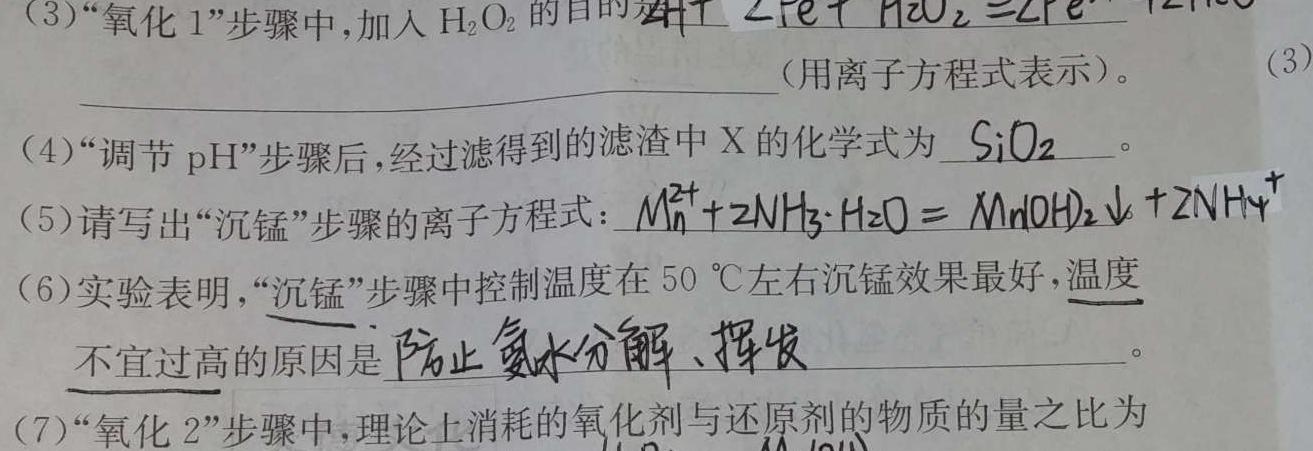 (3)“氧化1”步骤中,加入H₂O₂的目的是2H⁺ 2Fe + H2O2 =2Fe
(用离子方程式表示)。 (3)
(4)“调节pH”步骤后,经过滤得到的滤渣中X的化学式为 SiO2 。
(5)请写出“沉锰”步骤的离子方程式: Mn²⁺+2NH3·H2O = Mn(OH)2↓+2NH4⁺
(6)实验表明,“沉锰”步骤中控制温度在50 ℃左右沉锰效果最好,温度
不宜过高的原因是 防止氨水分解、挥发 。
(7)“氧化2”步骤中,理论上消耗的氧化剂与还原剂的物质的量之比为